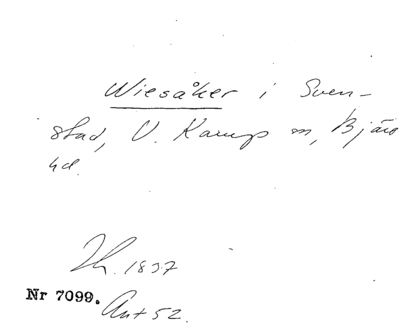 Wiesåker i Sven-
stad, V. Karup sn, Bjäre
hd.
Th. 1837
Nr 7099. Ant 52.